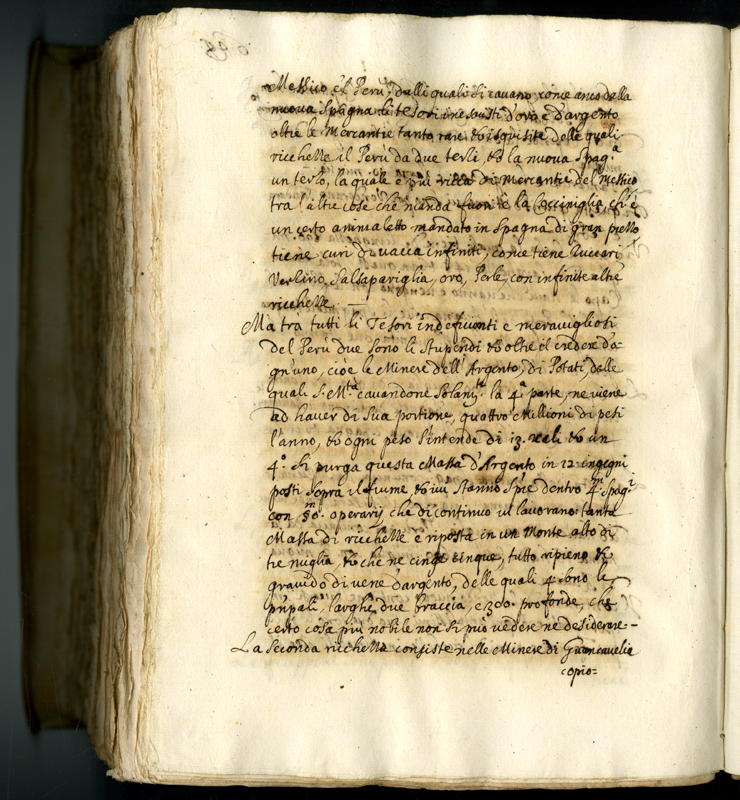 Messico è'l Perù, dalli quali si cavano come anco dalla
nuova Spagna li tesori inesausti d'oro, e d'argento
oltre le Mercantie tanto rare, et isquisite delle quali
ricchezze il Perù da due terzi, et la nuova Spag.a
un terzo, la quale è più ricca di Mercantie del Messico
tra l'altre cose che manda fuori è la Cociniglia, ch'è
un certo animaletto mandato in Spagna di gran prezzo
tiene curi di vacca infiniti, come tiene Zuccari
Verzino, Salsapariglia, oro, Perle, con infinite altre
ricchezze. —
Ma trà tutti li Tesori indeficienti e meravigliosi
del Perù due sono li stupendi et oltre il creder d'o=
gn'uno, cioè le Minere dell'Argento, di Potosi, delle
quali S. M.tà cavandone solam.te la 4.a parte, ne viene
ad haver di sua portione, quattro Millioni di pesi
l'anno, et ogni peso s'intende di 13. reali et un
4.o Si purga questa Massa d'Argento in 12 ingegni
posti sopra il fiume, et ivi stanno dentro 4.m Spag.i
con operarij, che di continuo vi lavorano: tanta
Massa di ricchezze è riposta in un Monte alto di
tre miglia, et che ne cinge cinque, tutto ripieno et
gravido di vene d'argento, delle quali 4 sono le
pnpali, larghe due braccia, e 300. profonde, che
certo cosa più nobile non si può vedere ne desiderare. –
La seconda ricchezza consiste nelle Minere di Guancavelica
copio=